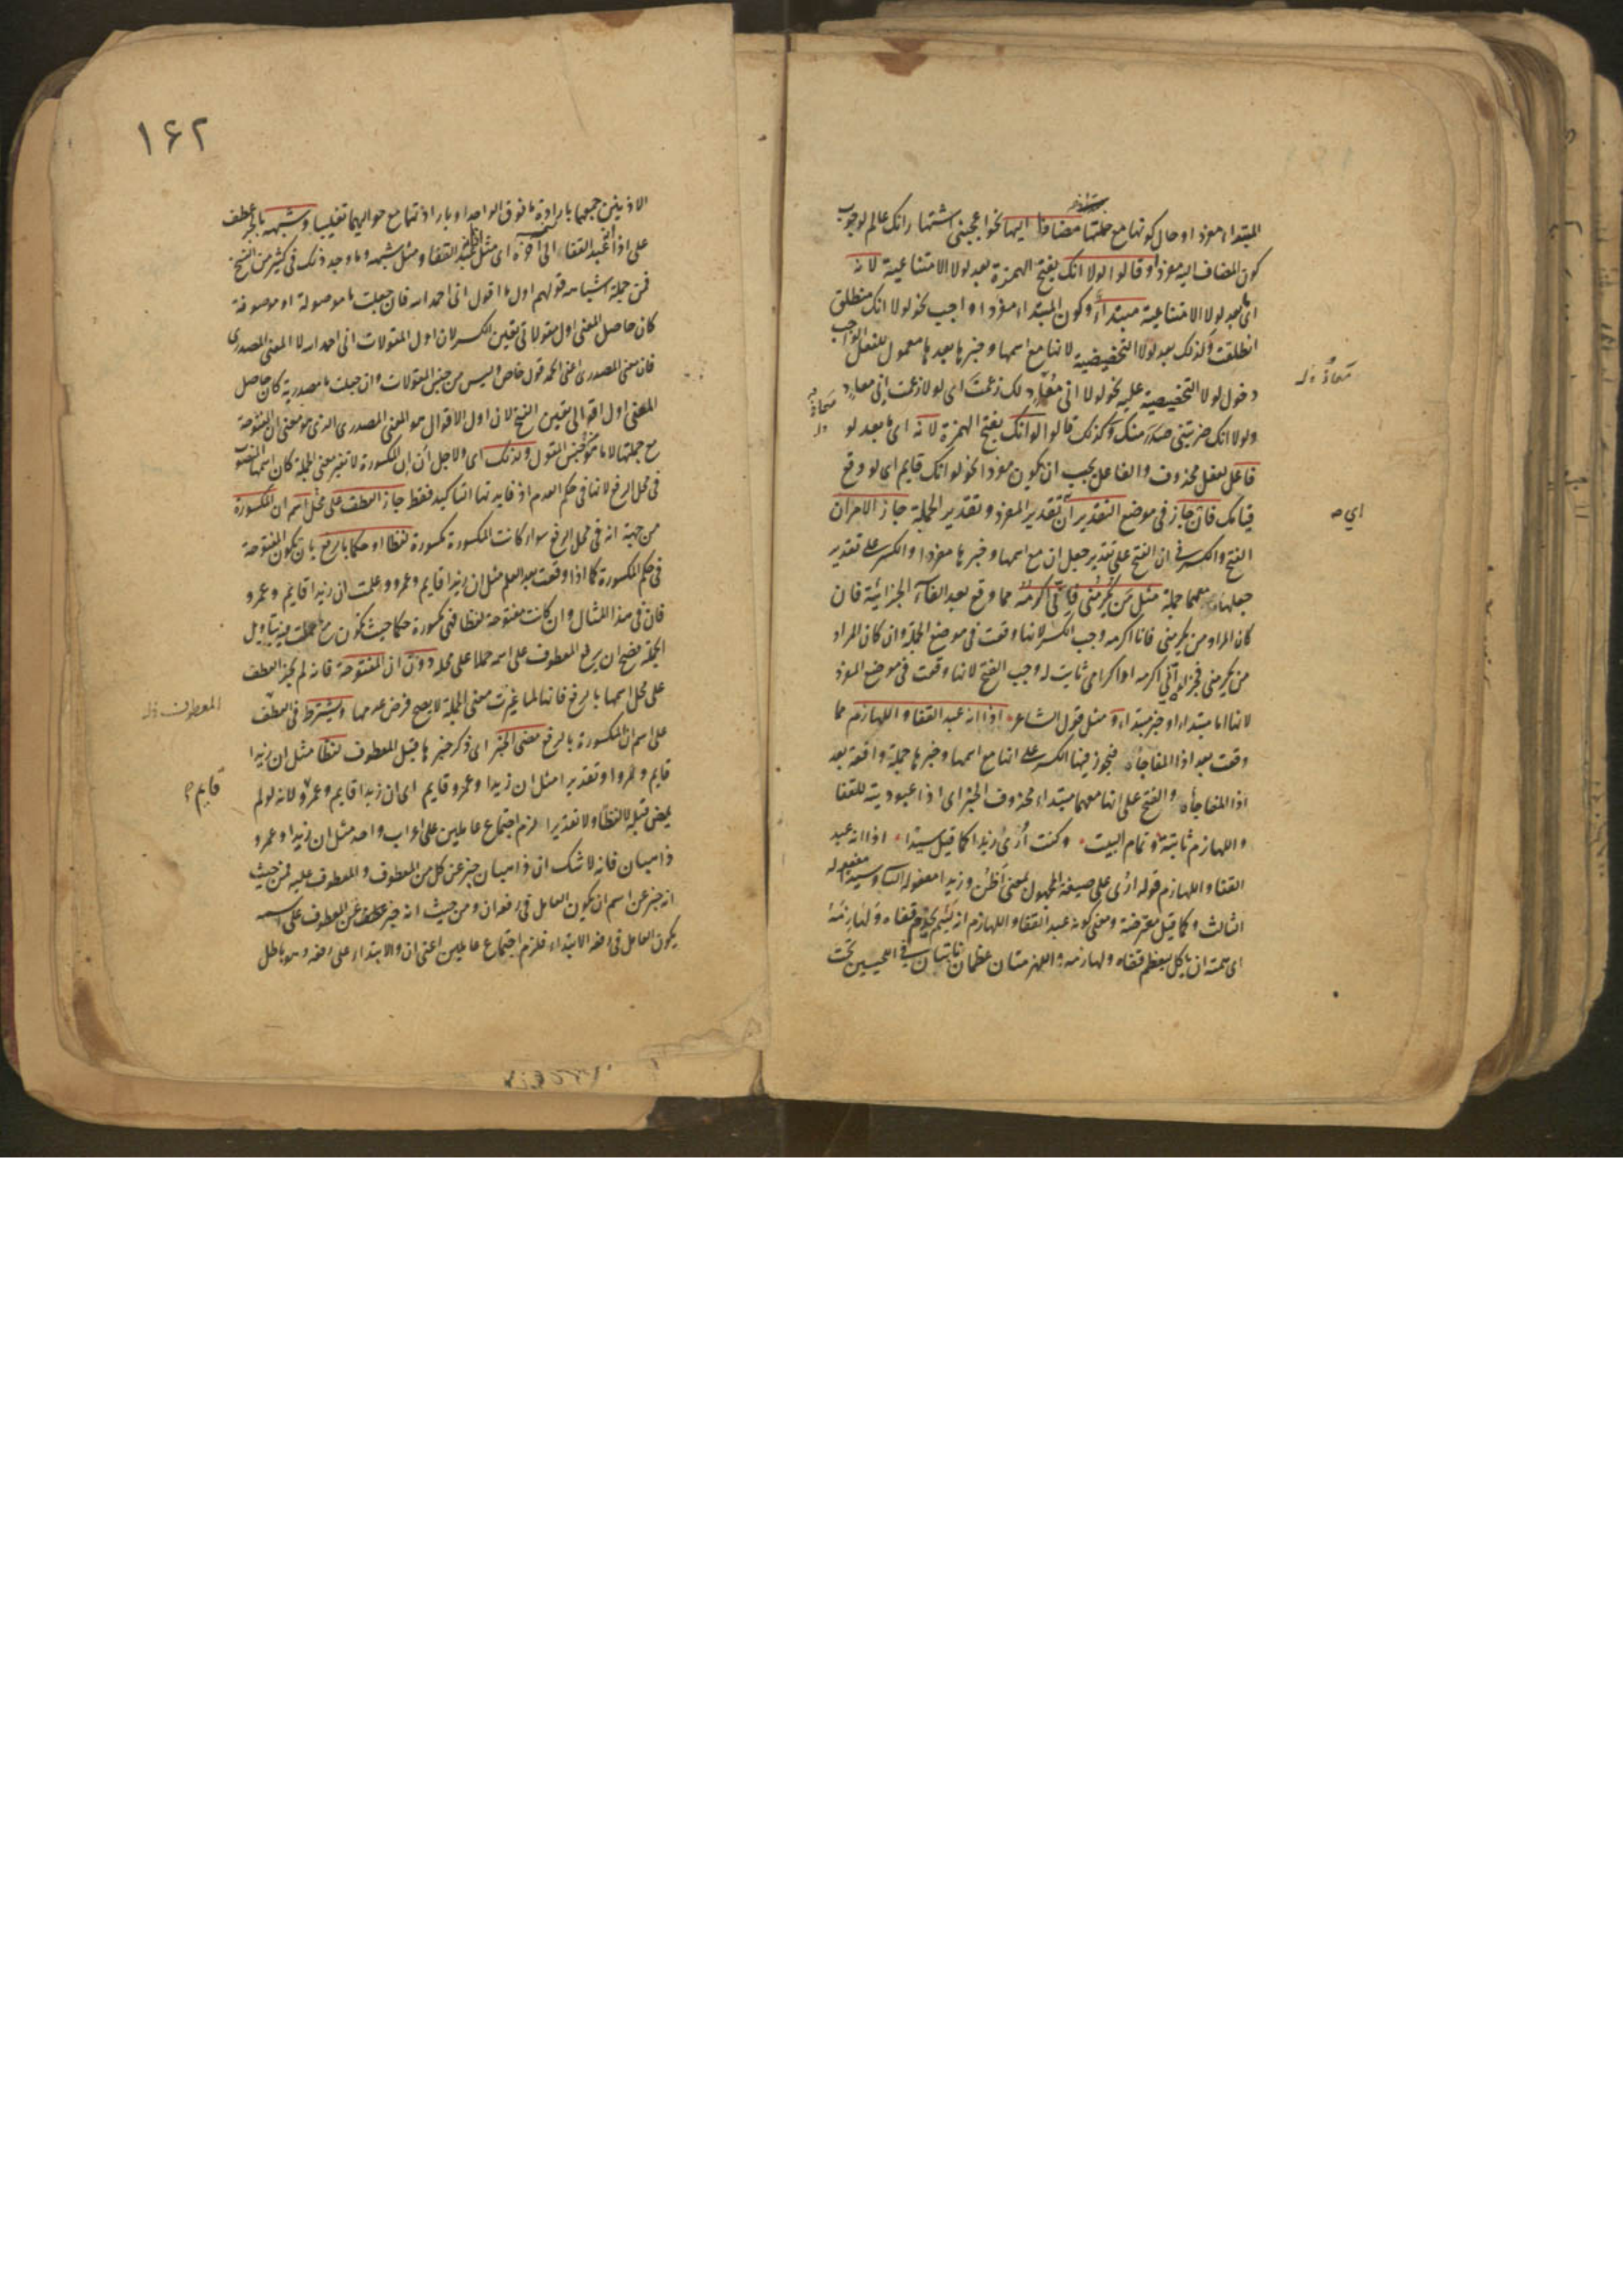 المبتداء مفردا وحال كونها مع جملتها مضافا اليها نحو اعجبنى اشتهار انك عالم لوجوب
كون المضاف اليه مفردا وقالوا لولا انك بفتح الهمزة بعد لولا الامتناعية لانه
اى ما بعد لولا الامتناعية مبتداء وكون المبتداء مفردا واجب نحو لولا انك منطلق
انطلقت وكذلك بعد لولا التحضيضية لانها مع اسمها وخبرها بعدها معمول للفعل الواجب
دخول لولا التحضيضية عليه نحو لولا انى معاد لك زعمت اى لولا زعمت انى معاد
ولولا انك ضربتنى صدر منك وكذلك قالوا لو انك بفتح الهمزة لانه اى ما بعد لو
فاعل لفعل محذوف والفاعل يجب ان يكون مفردا نحو لو انك قايم اى لو وقع
قيامك فان جاز فى موضع التقديران تقدير المفرد وتقدير الجملة جاز الامران
الفتح والكسر فى ان الفتح على تقدير جعل ان مع اسمها وخبرها مفردا والكسر على تقدير
جعلها معهما جملة مثل من يكرمنى فانى اكرمه مما وقع بعد الفاء الجزائية فان
كان المراد من يكرمنى فانا اكرمه وجب الكسر لانها وقعت فى موضع الجملة وان كان المراد
من يكرمنى فجزاؤه انى اكرمه او اكرامى ثابت له وجب الفتح لانها وقعت فى موضع المفرد
لانها اما مبتداء او خبر مبتداء و مثل قول الشاعر اذا انه عبد القفا واللهازم مما
وقعت بعد اذا المفاجأة فيجوز فيها الكسر على انها مع اسمها وخبرها جملة واقعة بعد
اذا المفاجأة والفتح على انها معهما مبتداء محذوف الخبر اى اذا عبوديته للقفا
واللهازم ثابتة وتمام البيت وكنت أرى زيدا كما قيل سيدا اذا انه عبد
القفا واللهازم قوله ارى على صيغة المجهول بمعنى أظن وزيدا مفعوله الثانى وسيدا مفعوله
الثالث وكما قيل معترضة ومعنى كونه عبد القفا واللهازم انه لئيم يخدم قفاه ولهازمه
اى همته ان ياكل ليعظم قفاه ولهازمه واللهزمتان عظمان ناتيان فى اللحيين تحت
اى ص
١٦٢
الاذنين جمعها بارادة ما فوق الواحد او بارادتهما مع حواليهما تغليبا وشبهه بالجر عطف
على اذا انه عبد القفاء الى آخره اى مثل عبد القفا ومثل شبهه وما وجد ذلك فى كثير من النسخ
فمن جملة اشباهه قولهم اول ما اقول انى احمد الله فان جعلت ما موصولة او موصوفة
كان حاصل المعنى اول مقولاتى تعين الكسر لان اول المقولات انى احمد الله لا المعنى المصدرى
فان معنى المصدرى اعنى الحمد قول خاص وليس من جنس المقولات وان جعلت ما مصدرية كان حاصل
المعنى اول اقوالى تعين الفتح لان اول الاقوال هو المعنى المصدرى الذى هو معنى ان المفتوحة
مع جملتها لا ما هو من جنس المقول ولذلك اى ولاجل ان ان المكسورة لا تغير معنى الجملة كان اسمها المنصوب
فى محل الرفع لانها فى حكم العدم اذ فايدتها التاكيد فقط جاز العطف على محل اسم ان المكسورة
من جهة انه فى محل الرفع سواء كانت المكسورة مكسورة لفظا او حكما بالرفع بان يكون المفتوحة
فى حكم المكسورة كما اذا وقعت بعد العلم مثل ان زيدا قايم وعمرو وعلمت ان زيدا قايم وعمرو
فان فى هذا المثال وان كانت مفتوحة لفظا فهى مكسورة حكما حيث تكون مع ما عملت فيه بتاويل
الجملة فصح ان يرفع المعطوف على اسمه حملا على محله دون ان المفتوحة فانه لم يجز العطف
على محل اسمها بالرفع فانها لما غيرت معنى الجملة لا يصح فرض عدمها ويشترط فى العطف
على اسم ان المكسورة بالرفع مضى الخبر اى ذكر خبرها قبل المعطوف لفظا مثل ان زيدا
قايم وعمرو او تقديرا مثل ان زيدا وعمرو قايم اى ان زيدا قايم وعمرو لانه لو لم
يمض قبله لا لفظا ولا تقديرا لزم اجتماع عاملين على اعراب واحد مثل ان زيدا وعمرو
ذاهبان فانه لا شك ان ذاهبان خبر عن كل من المعطوف والمعطوف عليه فمن حيث
انه خبر عن اسم ان يكون العامل فى رفعه ان ومن حيث انه خبر عن المعطوف على اسمه
يكون العامل فى رفعه الابتداء فلزم اجتماع عاملين اعنى ان والابتداء على رفعه وهو باطل
المعطوف
قايم